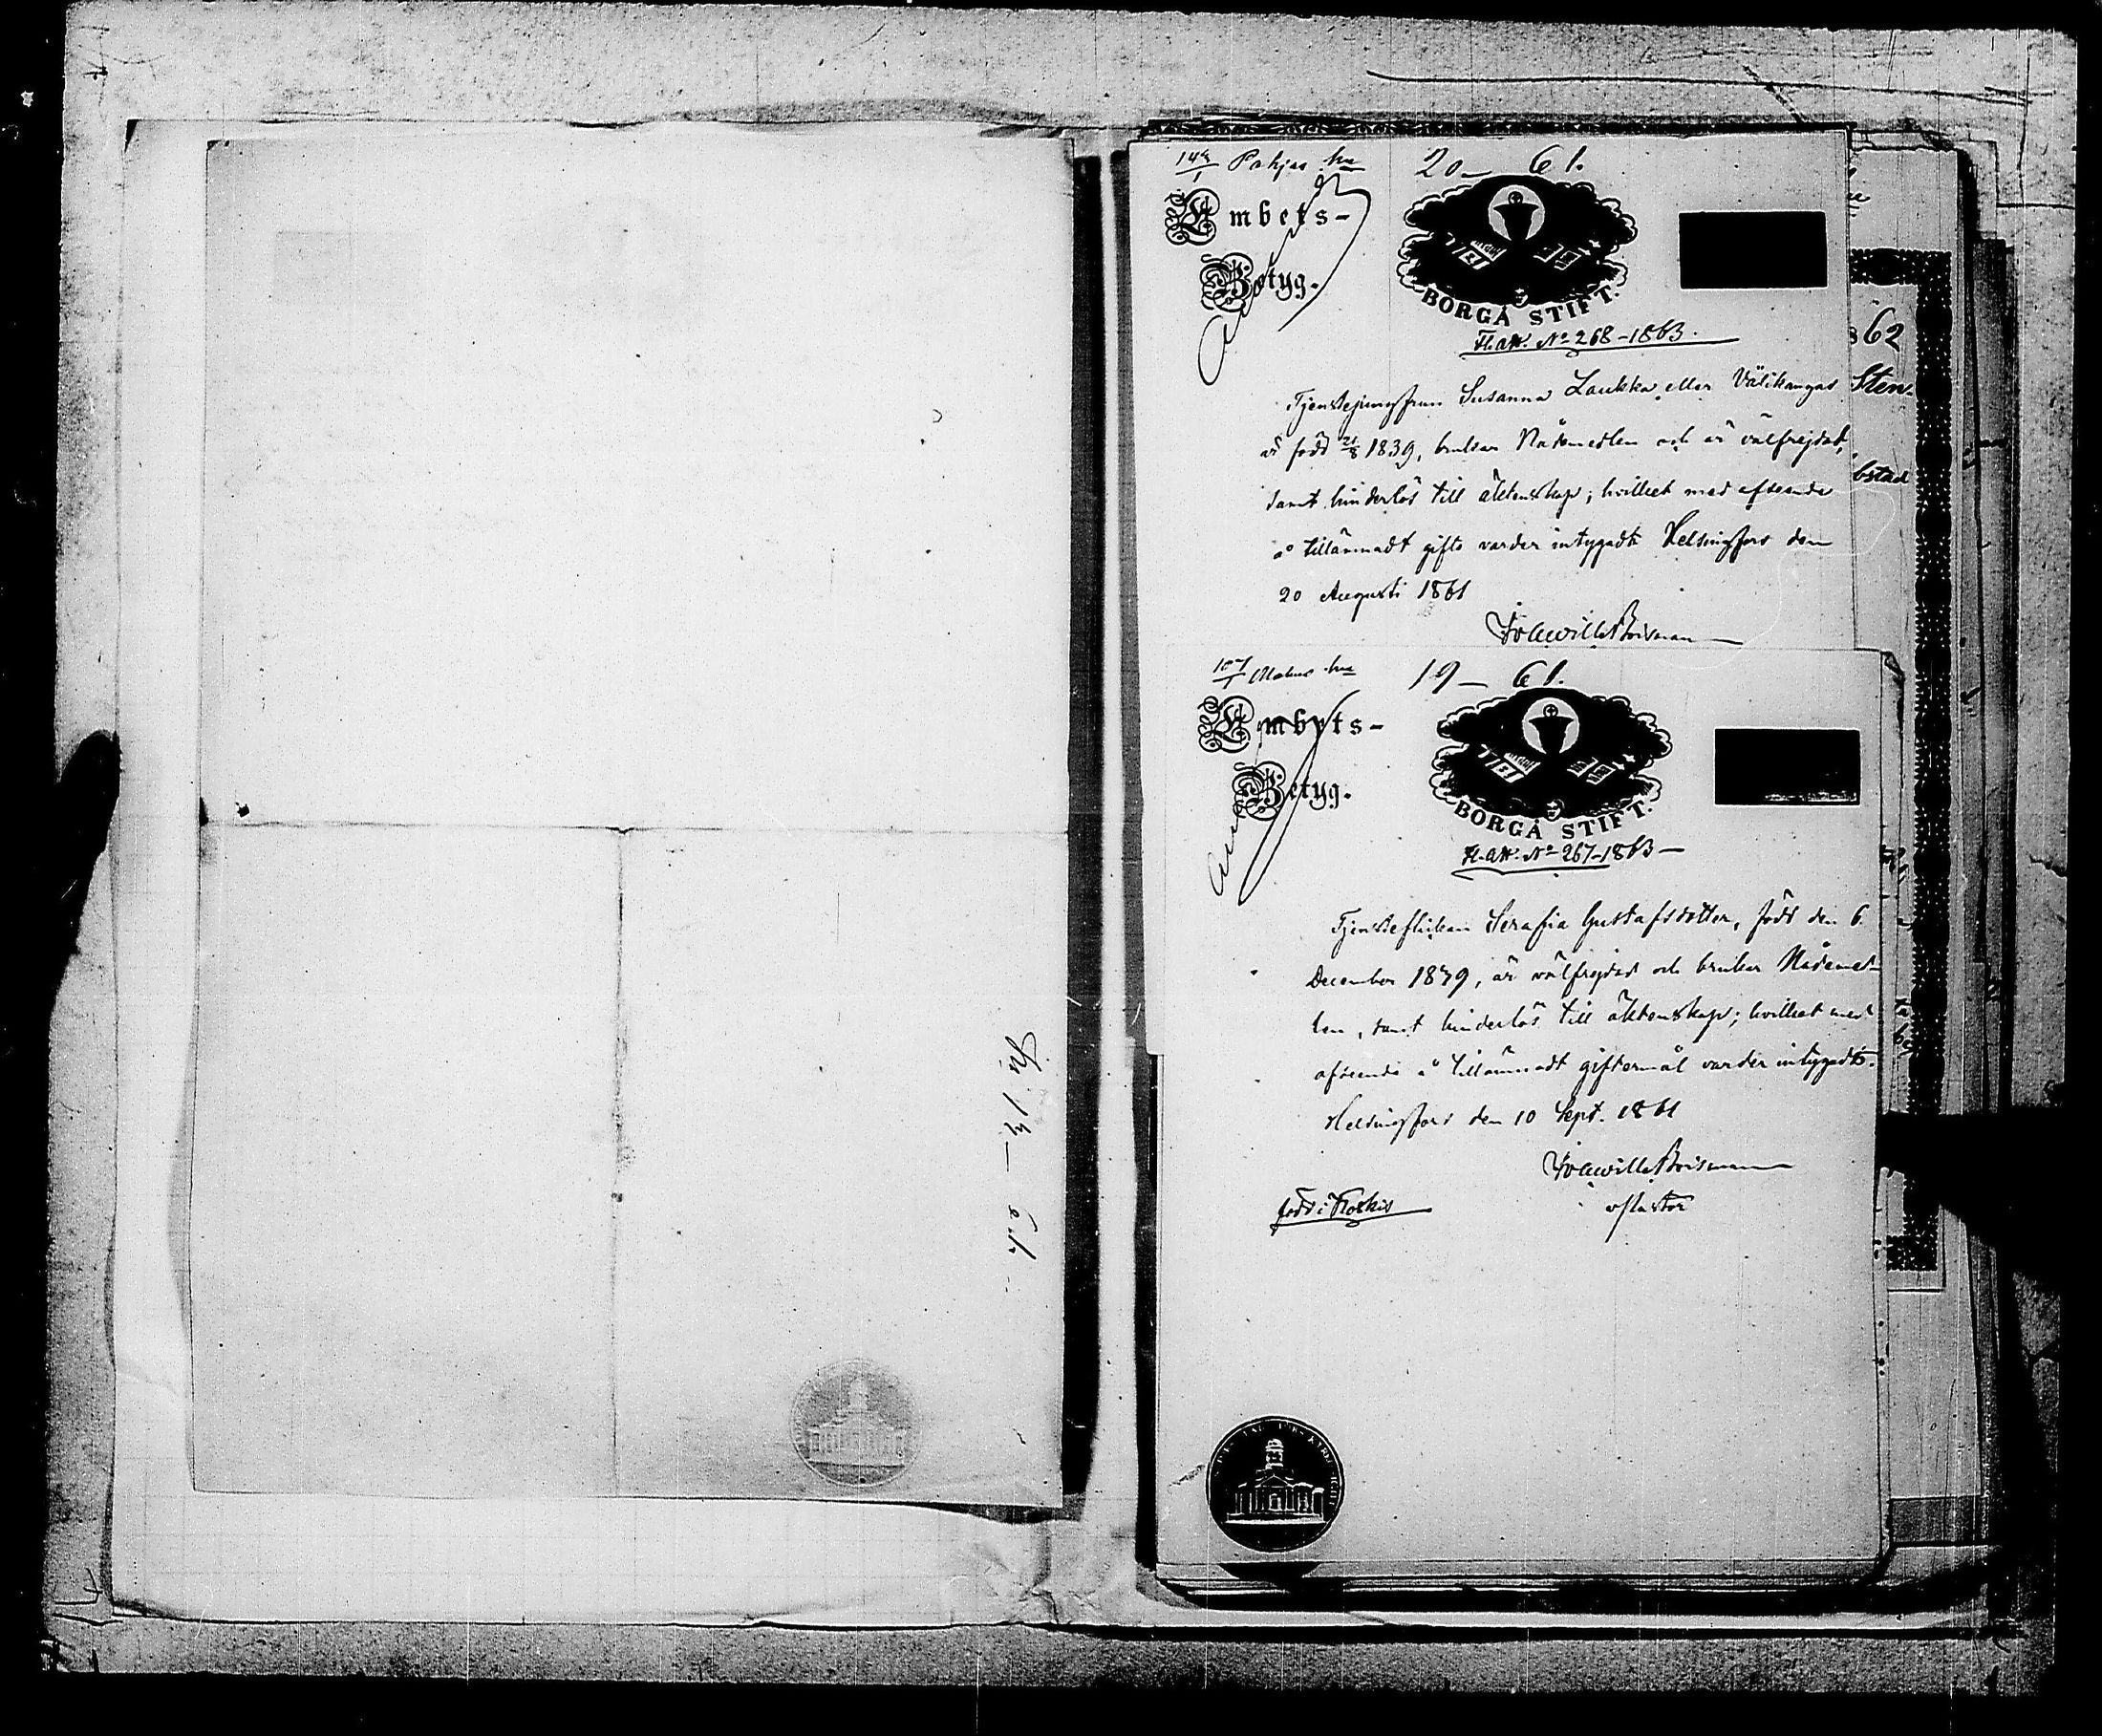 Pahjas hu
20 — 61.
Embets-
Betyg.
BORGÅ STIFT.
Fl. att. No 268–1863.
Tjenstejungfrun Susanna Laukka eller Välikangas
är född 21/8 1839, brukar Nådemedlen och är välfrejdad,
samt hinderlös till äktenskap; hvilket med afseende
å tillämnadt gifte varder intygadt. Helsingfors den
20 Augusti 1861
62
Sten-
bstad
hu
19 — 61.
Embets-
Betyg.
BORGÅ STIFT.
Fl. att. No 267–1863 —
Tjensteflickan Serafia Gustafsdotter, född den 6
December 1839, är välfrejdad och brukar Nådemed-
len, samt hinderlös till äktenskap; hvilket med
afseende å tillämnadt giftermål varder intygadt.
Helsingfors den 10 Sept. 1861
född i Koskis
v Pastor